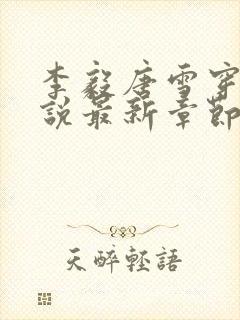 李毅唐雪穿
説最新章節
天醉輕語